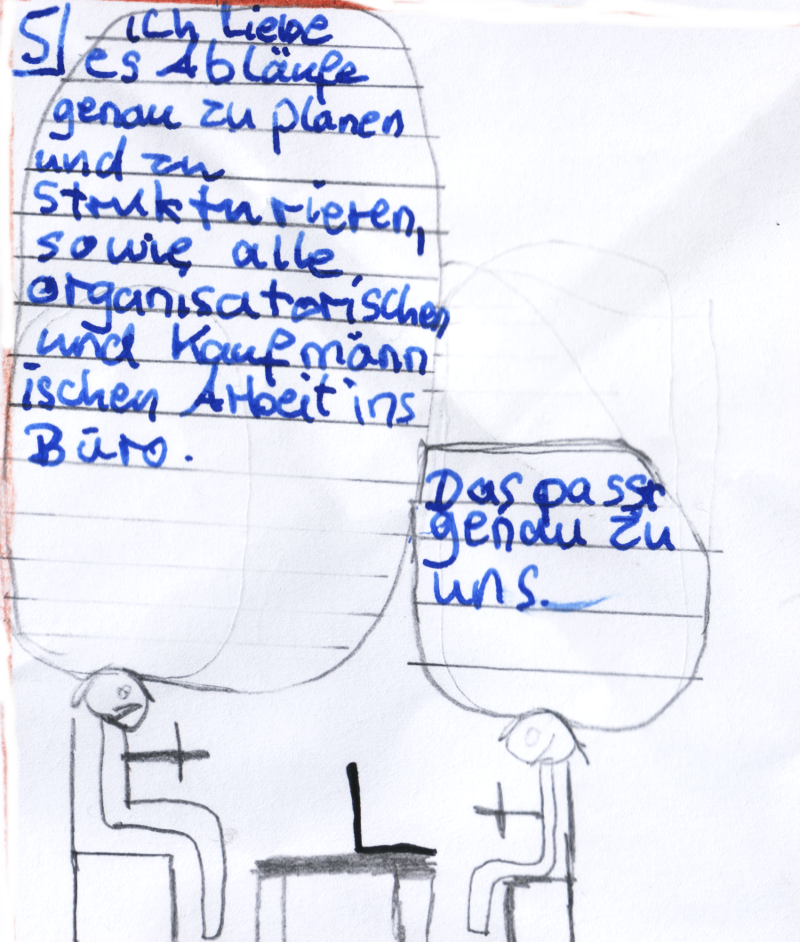 5
ich Liebe
es Abläufe
genau zu planen
und zu
strukturieren,
sowie alle
organisatorischen
und Kaufmänn
ischen Arbeit ins
Büro.
Das passt
genau zu
uns.